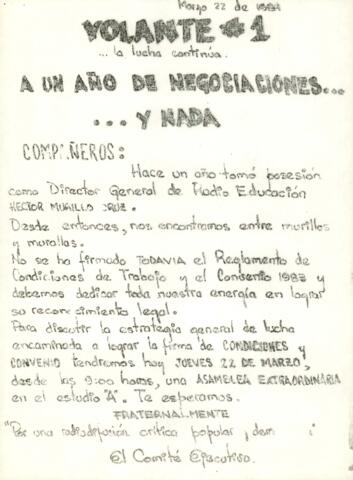 Marzo 22 de 1984
VOLANTE #1
... la lucha continúa.
A UN AÑO DE NEGOCIACIONES...
... Y NADA
COMPAÑEROS:
Hace un año tomó posesión
como Director General de Radio Educación
HECTOR MURILLO CRUZ.
Desde entonces, nos encontramos entre murillos
y murallas.
No se ha firmado TODAVIA el Reglamento de
Condiciones de Trabajo y el Convenio 1983 y
debemos dedicar toda nuestra energía en lograr
su reconocimiento legal.
Para discutir la estrategia general de lucha
encaminada a lograr la firma de CONDICIONES y
CONVENIO tendremos hoy JUEVES 22 DE MARZO,
desde las 9:00 horas, una ASAMBLEA EXTRAORDINARIA
en el estudio "A". Te esperamos.
FRATERNALMENTE
"Por una radiodifusión crítica popular y
El Comité Ejecutivo.